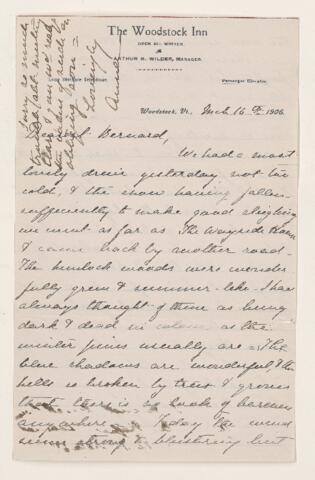 The Woodstock Inn
OPEN ALL WINTER.
ARTHUR B. WILDER, MANAGER.
Long Distance Telephone.
Passenger Elevator.
Woodstock, Vt., Mch 16th, 1906.
Bernard,
We had a most
lovely drive yesterday not too
cold, & the snow having fallen
sufficiently to make good sleighing
we went as far as The Wayside
& came back by another road.
The hemlock woods were wonder-
fully green & summer-like. I have
always thought of them as being
dark & dead in colour as the
winter pines usually are. The
blue shadows are wonderful & the
hills so broken by trees & groves
that there is no look of barrenness
anywhere. Today the wind
seems strong & blustering but
Sorry so much